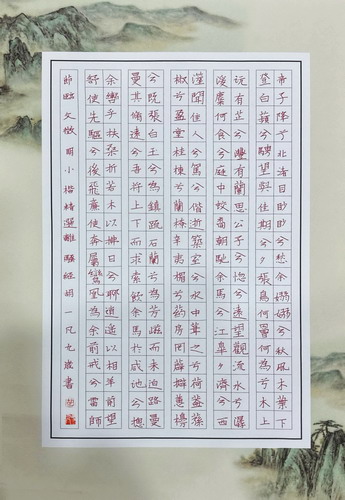 帝子降兮北渚目眇眇兮愁余嫋嫋兮秋風木葉下
登白蘋兮騁望與佳期兮夕張鳥何罾何為兮木上
沅有芷兮澧有蘭思公子兮惚兮遠望觀流水兮潺
湲麋何食兮庭中蛟裔朝馳余馬兮江皋夕濟兮西
澨聞佳人兮駕兮偕逝築室兮水中葺之兮荷蓋蓀
椒兮盈堂桂棟兮蘭橑辛夷楣兮葯房罔薜擗蕙櫋
兮既張白玉兮為鎮疏石蘭兮為芳而未迫路曼
曼其脩遠兮吾將上下而求索飲余馬於咸池兮總
余轡乎扶桑折若木以拂日兮聊逍遙以相羊前望
舒使先驅兮後飛廉使奔屬鸞鳳為余前戒兮雷師
節臨文徵明小楷精選離騷經胡一凡七歲書